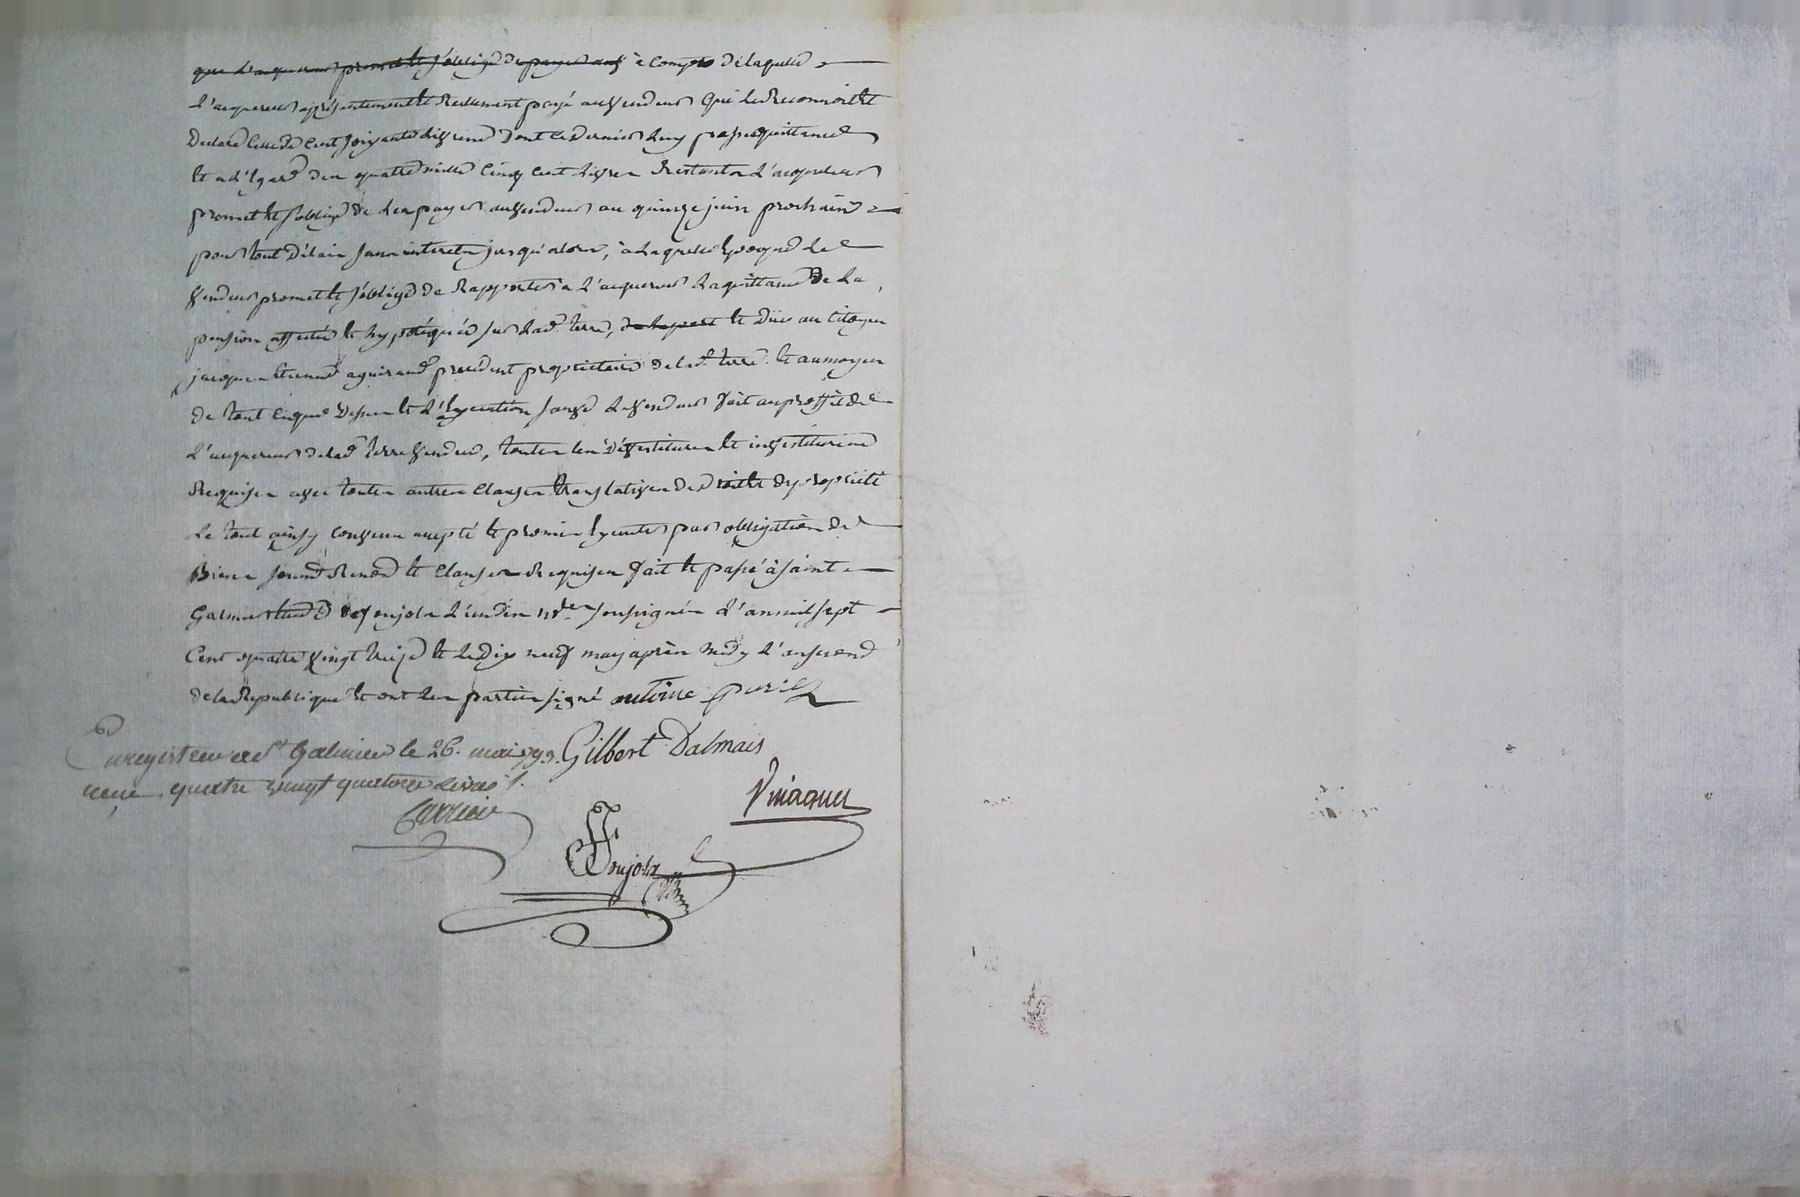 que l'acquereur promet et s'oblige de payer aux à compte de laquelle
l'acquereur a présentement et réelement payé au vendeur qui le reconnoit et
declare celle de cent soixante livres dont ce dernier luy passe quittance
et a l'égard des quatre mille cinq cent livres restantes l'acquereur
promet et s'oblige de les payer au vendeur au quinze juin prochain
pour tout délai sans interets jusqu'alors, à laquelle époque le
vendeur promet et s'oblige de rapporter à l'acquereur la quittance de la
pension affectée et hypotéquée sur lad. terre, et due au citoyen
jacques etienne aguiraud precedent propriétaire de lad. terre. et au moyen
de tout ce que dessus et l'éxecution sauve le vendeur fait au proffit de
l'acquereur de lad. terre vendue, toutes les dévestitures et investitures
requises avec toutes autres clauses translatives de droits de propriété
le tout ainsy convenu accepté et promis éxecuter par obligation de
Biens soumis renon. et clauses requises fait et passé à saint
Galmier étude de foujols l'un des nres. soussignés l'an mil sept
cent quatre vingt treize et le dix neuf may après midy l'an second
de la République et ont les parties signé antoine
Gilbert Dalmais
Enregistré a St Galmier le 26. mai 1793.
reçu quatre vingt quatorze livres